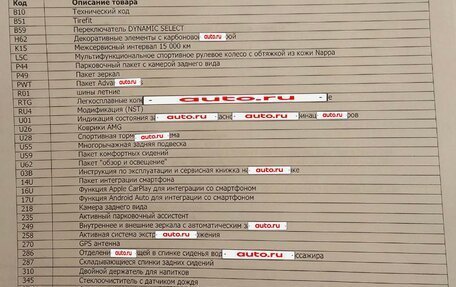 Код Описание товара
B10 Технический код
B51 Tirefit
B59 Переключатель DYNAMIC SELECT
H62 Декоративные элементы с карбоново auto.ru ой
K15 Межсервисный интервал 15 000 км
L5C Мультифункциональное спортивное рулевое колесо с обтяжкой из кожи Nappa
P44 Парковочный пакет с камерой заднего вида
P49 Пакет зеркал
PWT Пакет Adva auto.ru
R01 шины летние
RTG Легкосплавные коле auto.ru е
RU4 Модификация (NST)
U01 Индикация состояния за auto.ru асно auto.ru инац auto.ru ров
U26 Коврики AMG
U28 Спортивная торм auto.ru ема
U55 Многорычажная задняя подвеска
U59 Пакет комфортных сидений
U62 Пакет "обзор и освещение"
03B Инструкция по эксплуатации и сервисная книжка на auto.ru ке
14U Пакет интеграции смартфона
16U Функция Apple CarPlay для интеграции со смартфоном
17U Функция Android Auto для интеграции со смартфоном
218 Камера заднего вида
235 Активный парковочный ассистент
249 Внутреннее и внешние зеркала с автоматическим за auto.ru
258 Активная система экстр auto.ru ожения
270 GPS антенна
286 Отделени auto.ru щей в спинке сиденья вод auto.ru ссажира
287 Складывающиеся спинки задних сидений
310 Двойной держатель для напитков
345 Стеклоочиститель с датчиком дождя